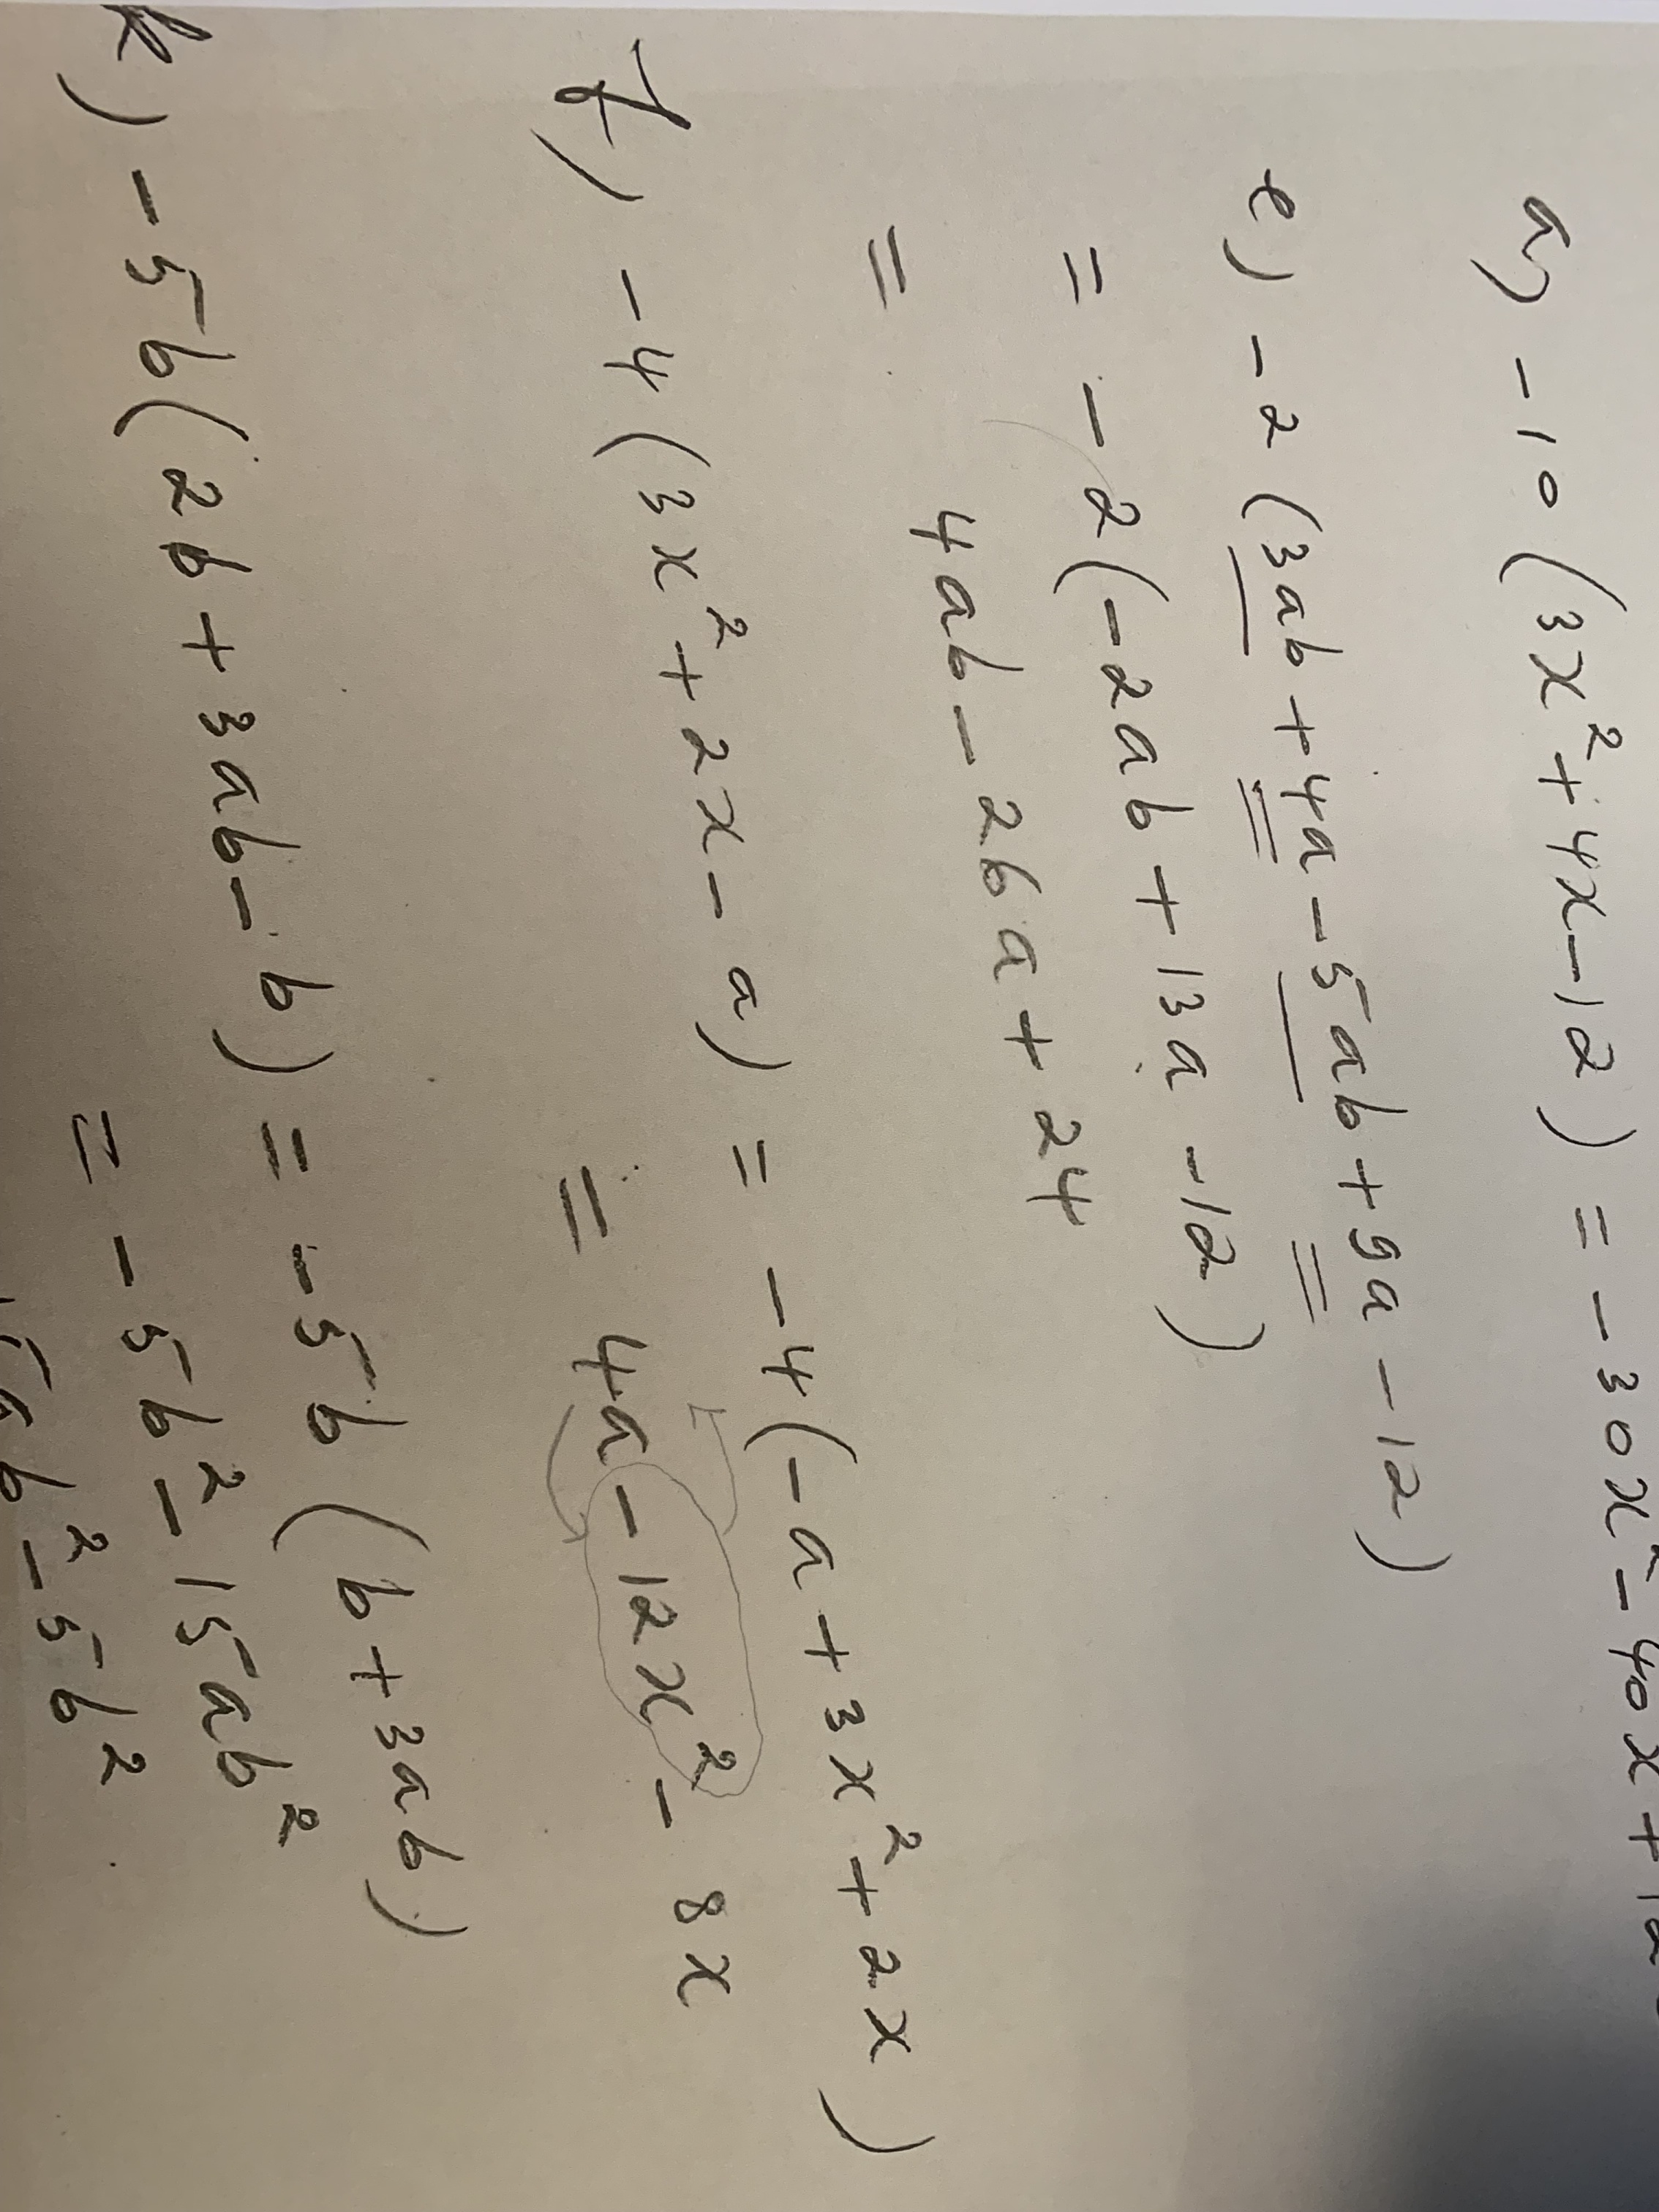 a) -10 (3x² + 4x - 12) = -30x² - 40x + 12
e) -2 (3ab + 4a - 5ab + 9a - 12)
= -2 (-2ab + 13a - 12)
= 4ab - 26a + 24
f) -4 (3x² + 2x - a) = -4 (-a + 3x² + 2x)
= 4a - 12x² - 8x
k) -5b (2b + 3ab - b) = -5b (b + 3ab)
= -5b² - 15ab²
15ab² - 5b²